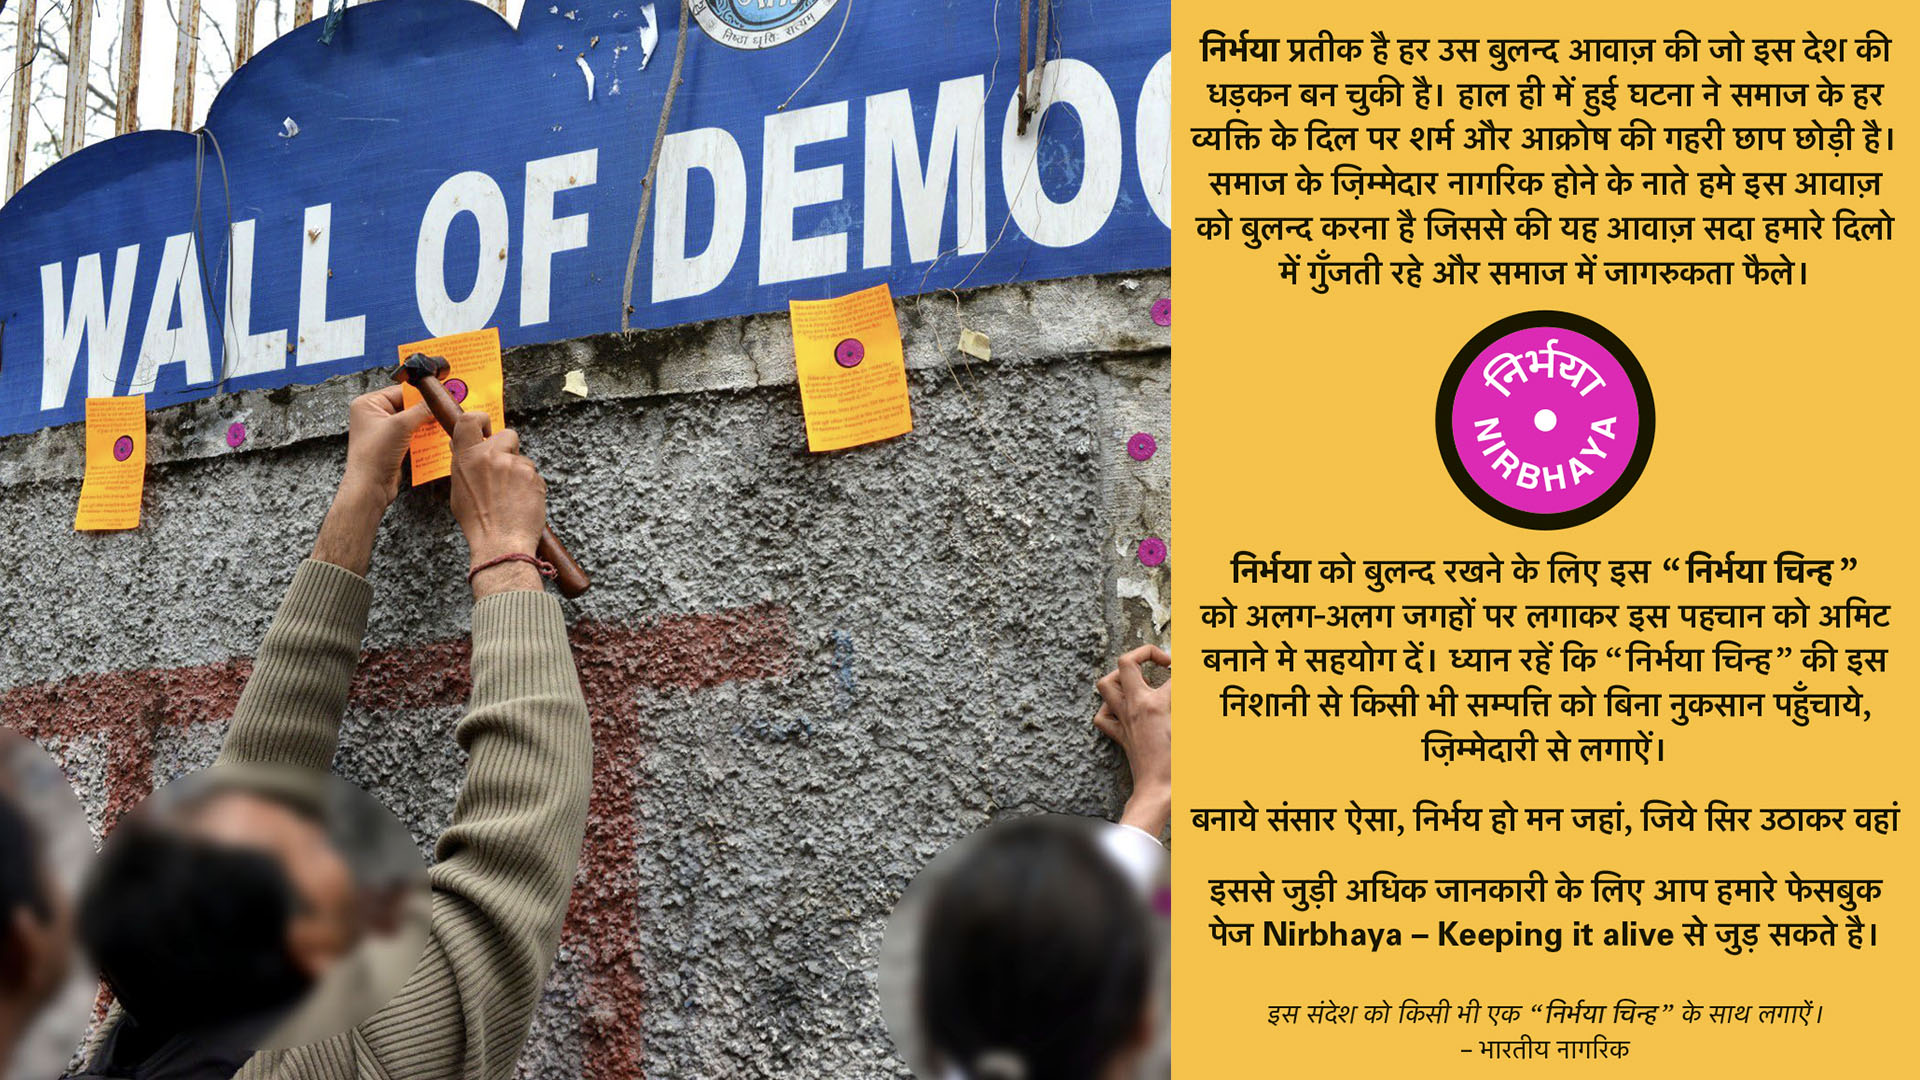 निष्ठा धृतिः सत्यम्
WALL OF DEMO
निर्भया प्रतीक है हर उस बुलन्द आवाज़ की जो इस देश की
धड़कन बन चुकी है। हाल ही में हुई घटना ने समाज के हर
व्यक्ति के दिल पर शर्म और आक्रोष की गहरी छाप छोड़ी है।
समाज के ज़िम्मेदार नागरिक होने के नाते हमे इस आवाज़
को बुलन्द करना है जिससे की यह आवाज़ सदा हमारे दिलो
में गुँजती रहे और समाज में जागरुकता फैले।
निर्भया
NIRBHAYA
निर्भया को बुलन्द रखने के लिए इस “निर्भया चिन्ह”
को अलग-अलग जगहों पर लगाकर इस पहचान को अमिट
बनाने मे सहयोग दें। ध्यान रहें कि “निर्भया चिन्ह” की इस
निशानी से किसी भी सम्पत्ति को बिना नुकसान पहुँचाये,
ज़िम्मेदारी से लगाऐं।
बनाये संसार ऐसा, निर्भय हो मन जहां, जिये सिर उठाकर वहां
इससे जुड़ी अधिक जानकारी के लिए आप हमारे फेसबुक
पेज Nirbhaya – Keeping it alive से जुड़ सकते है।
इस संदेश को किसी भी एक “निर्भया चिन्ह” के साथ लगाऐं।
– भारतीय नागरिक